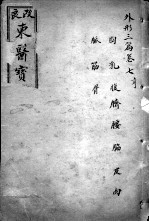 外形三篇卷七
胸乳腹臍腰脇皮肉
脈筋骨
改良
東醫寶